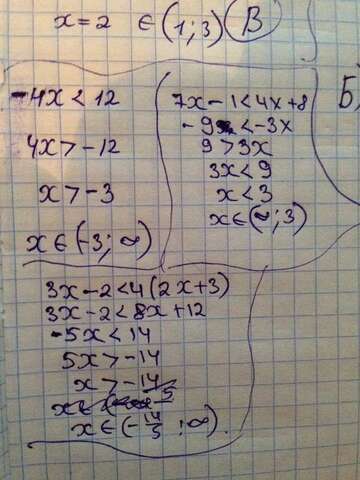 x=2 ∈(1;3) В
-4x<12
4x>-12
x>-3
x∈(-3;∞)
Б)
7x-1<4x+8
-9<-3x
9>3x
3x<9
x<3
x∈(∞;3)
3x-2<4(2x+3)
3x-2<8x+12
-5x<14
5x>-14
x>-14/5
x∈(-14/5;∞).